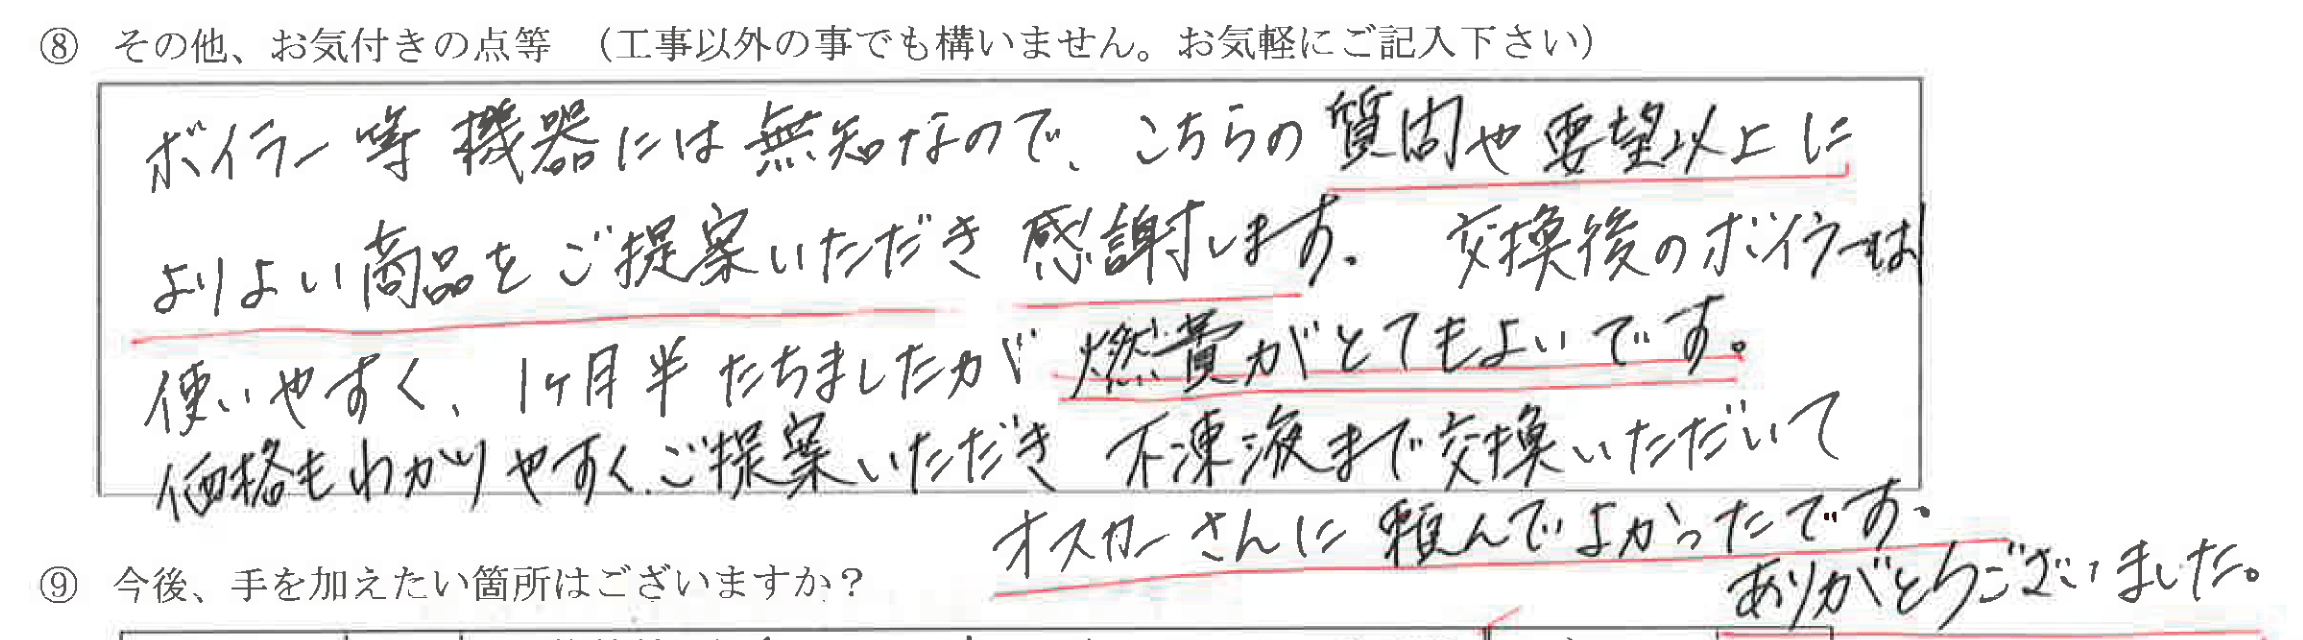 ⑧ その他、お気付きの点等 (工事以外の事でも構いません。お気軽にご記入下さい)
ボイラー等機器には無知なので、こちらの質問や要望以上に
よりよい商品をご提案いただき感謝します。 交換後のボイラーは
使いやすく、1ヶ月半たちましたが燃費がとてもよいです。
価格もわかりやすくご提案いただき不凍液まで交換いただいて
オスカーさんに頼んでよかったです。
ありがとうございました。
⑨ 今後、手を加えたい箇所はございますか?